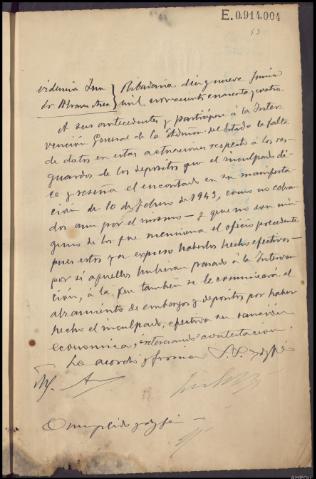 E.0.914.004
Ribadavia diez y nueve Junio
mil novecientos cuarenta y cuatro
A sus antecedentes y participese á la Inter-
vención General de la Admon. del Estado la falta
de datos en estas actuaciones respecto á los res-
guardos de los depósitos que el inculpado di-
ce y reseña el encartado en su manifesta-
ción de 10 de febrero de 1943, como no cobra-
dos aun por el mismo — y que no son nin-
guno de los que menciona el oficio precedente
pues estos ya expuso haberlos hecho efectivos —
por si aquellos hubieran pasado á la Interven-
ción, á la que tambien se le comunicará el
alzamiento de embargos y depósitos por haber
hecho el inculpado, efectiva su sanción
economica, interesando contestacion.
Lo acordó y firma S.S. doy fé
Cumplido doy fé